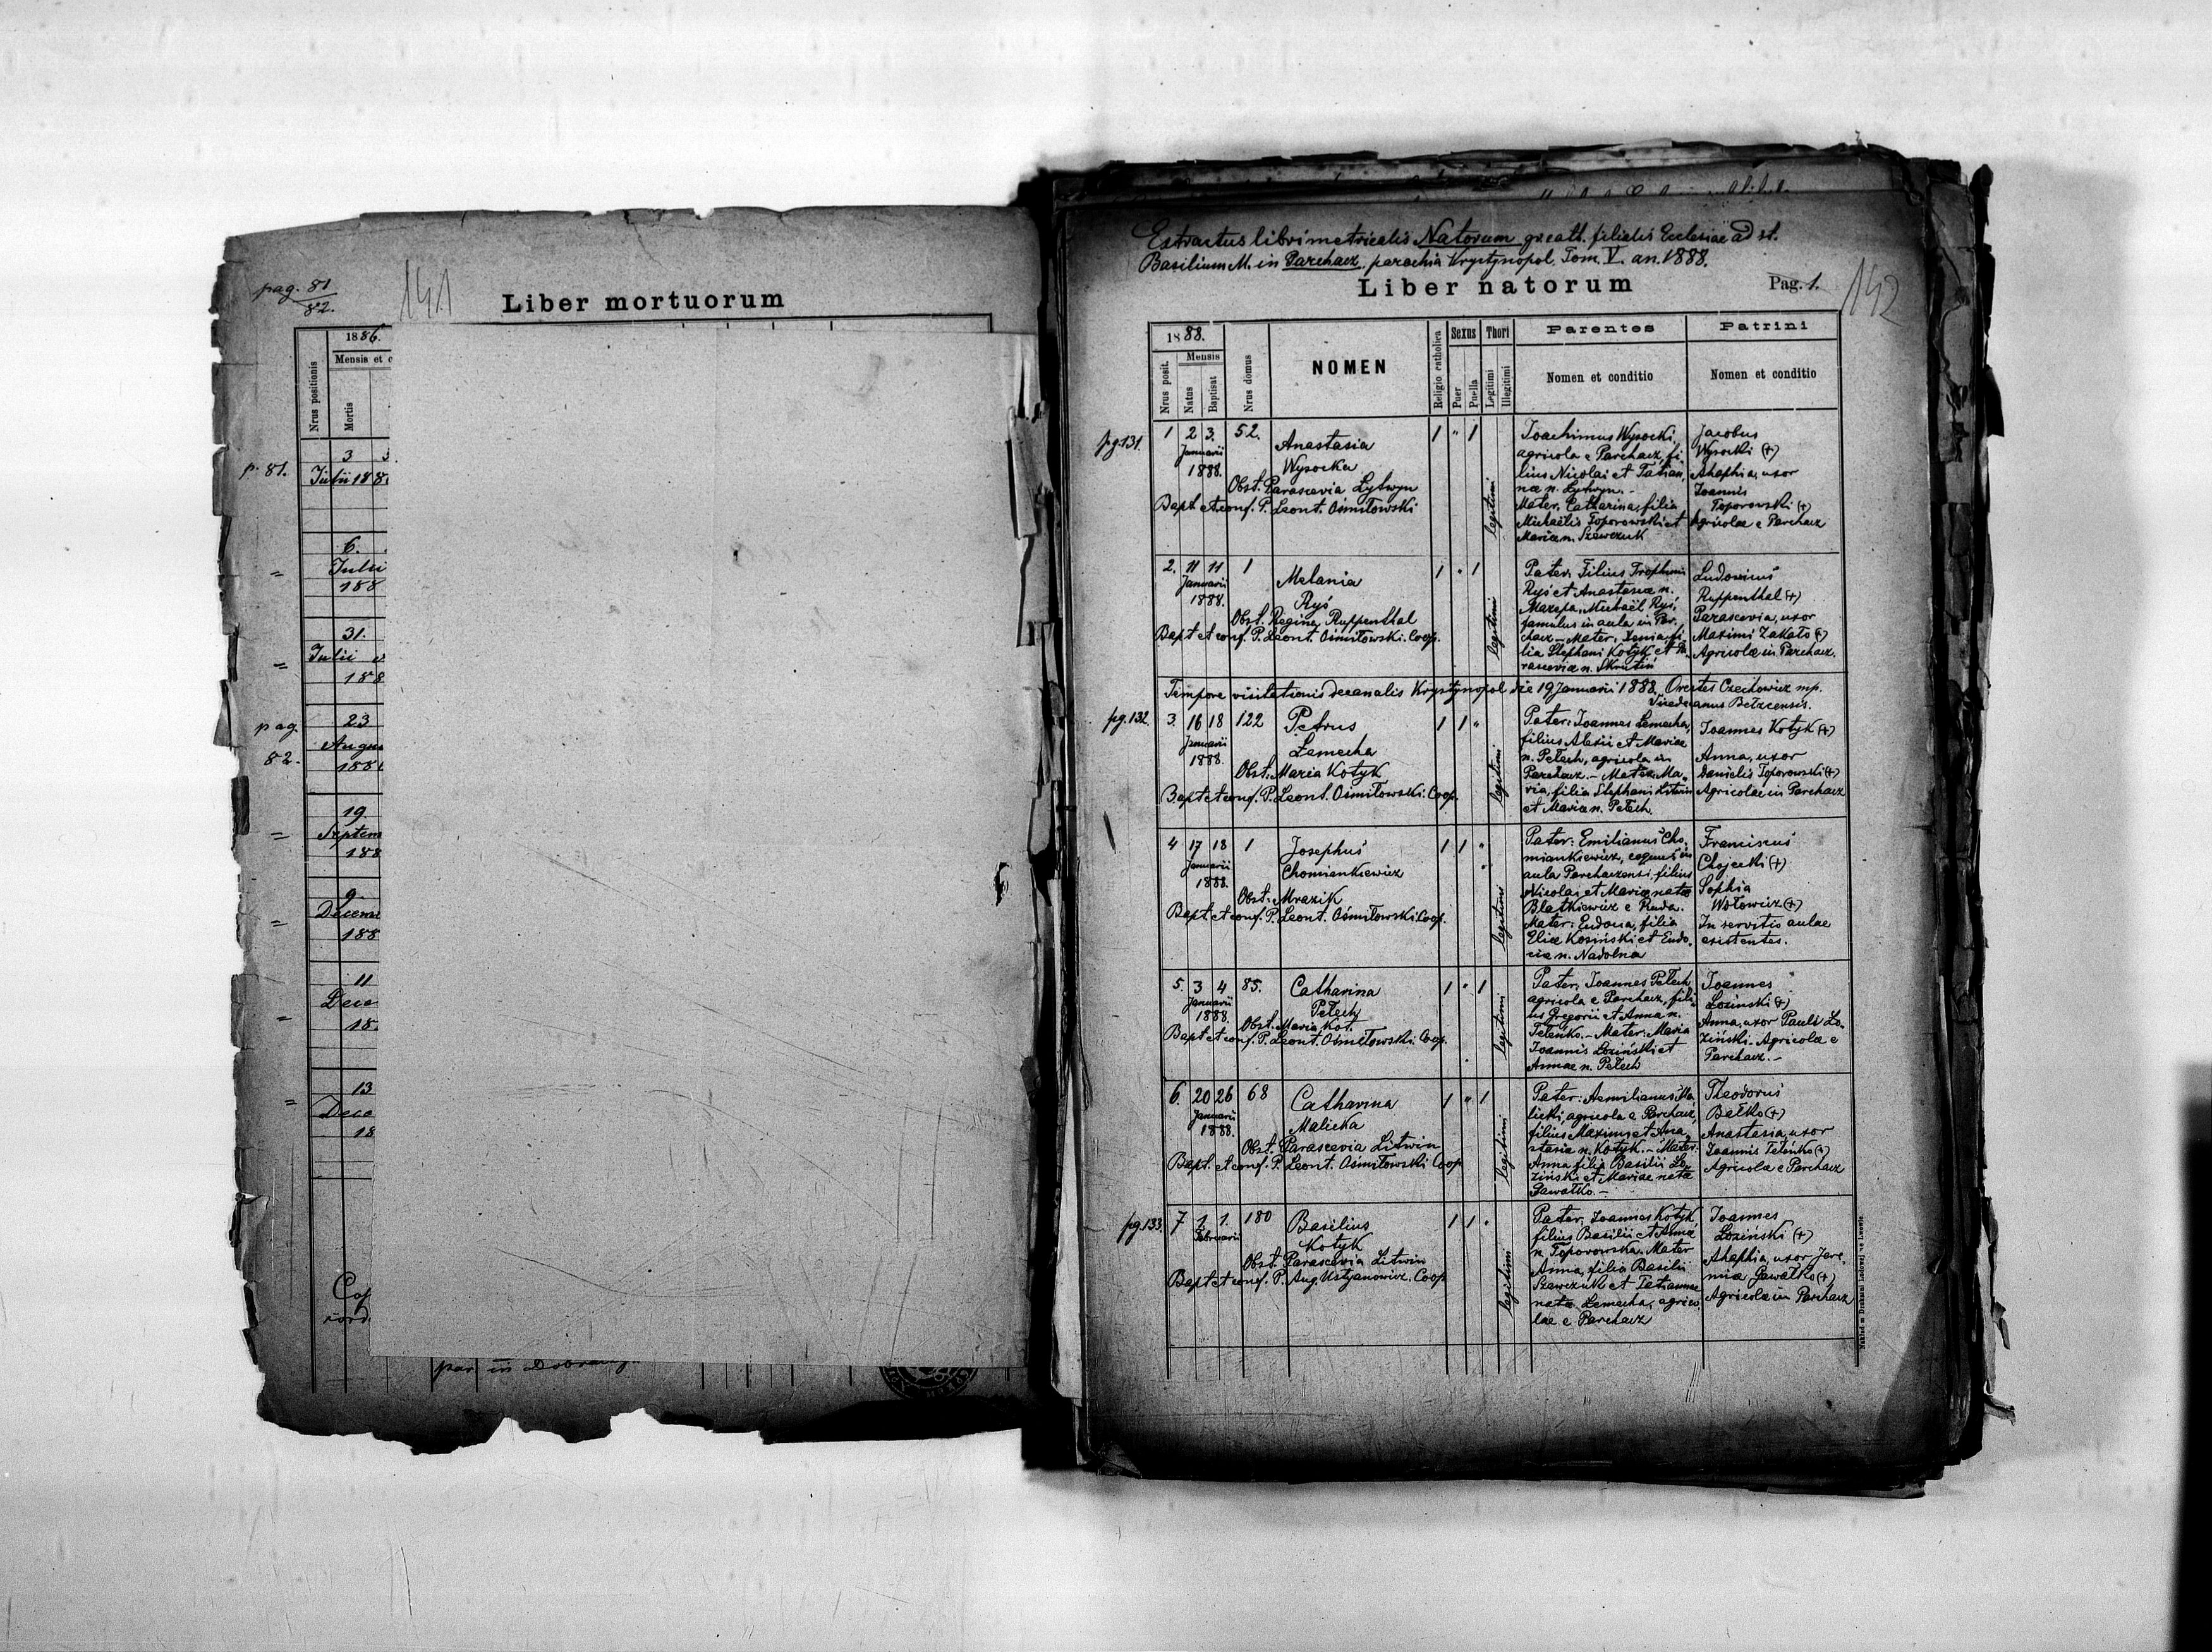 pag. 81
82.
141
Liber mortuorum
1886.
Mensis et c
Nrus positionis
Mortis
p. 81.
3 3
Julii 188
6.
Julii
188
31.
Julii
188
pag
82.
23
Augu
188
19
Septem
188
9
Decem
188
11
Dece
18
13
Dece
18
Cop
cord
par in Dobraczy
Extractus libri metricalis Natorum gr. cath. filialis Ecclesiae ad st.
Basilium M. in Parchacz, parochia Krystynopol. Tom. V. an. 1888.
Liber natorum
Pag. 1.
142
1888.
Nrus posit.
Mensis
Natus
Baptisat
Nrus domus
NOMEN
Religio catholica
Sexus
Puer
Puella
Thori
Legitimi
Illegitimi
Parentes
Nomen et conditio
Patrini
Nomen et conditio
pg. 131.
1 2 3. 52.
Januarii
1888.
Anastasia
Wysocka
Obst. Parascevia Lytwyn
Bapt et conf. P. Leont. Ośmiłowski
1 " 1
legitimi
Joachimus Wysocki,
agricola e Parchacz, fi-
lius Nicolai et Tatian-
nae n. Lytwyn. -
Mater, Catharina, filia
Michaëlis Toporowski et
Mariae n. Szewczuk
Jacobus
Wysocki (+)
Ahaphia, uxor
Joannis
Toporowski (+)
Agricolae e Parchacz
2. 11 11 1
Januarii
1888.
Melania
Ryś
Obst. Regina Ruppenthal
Bapt et conf. P. Leont. Ośmiłowski. Coop.
1 " 1
legitimi
Pater: Filius Trophimi
Ryś et Anastasiae n.
Mazepa, Michaël Ryś,
famulus in aula in Par-
chacz - Mater: Xenia, fi-
lia Stephani Kotyk et Pa-
rasceviae n. Skrutiń
Ludovicus
Ruppenthal (+)
Parascevia, uxor
Maximi Zakało (+)
Agricolae in Parchacz.
Tempore visitationis decanalis Krystynopol die 19 Januarii 1888. Orestes Czechowicz mp.
Vicedecanus Bełzcensis.
pg. 132.
3. 16 18 122
Januarii
1888.
Petrus
Lemecha
Obst. Maria Kotyk
Bapt et conf. P. Leont. Ośmiłowski. Coop.
1 1 "
legitimi
Pater: Joannes Lemecha,
filius Alexii et Mariae
n. Pełech, agricola in
Parchacz. - Mater: Ma-
ria, filia Stephani Litwin
et Mariae n. Pełech
Joannes Kotyk (+)
Anna, uxor
Danielis Toporowski (+)
Agricolae in Parchacz
4 17 18 1
Januarii
1888.
Josephus
Chomiankiewicz
Obst: Mrazik
Bapt et conf. P. Leont. Ośmiłowski Coop.
1 1 "
legitimi
Pater: Emilianus Cho-
miankiewicz, coquus in
aula Parchaczensi, filius
Nicolai et Mariae natae
Blatkiewicz e Ruda.
Mater: Eudocia, filia
Eliae Kosiński et Eudo-
ciae n. Nadolna
Franciscus
Chojecki (+)
Sophia
Wołowicz (+)
In servitio aulae
existentes.
5. 3 4 85.
Januarii
1888.
Catharina
Pełech
Obst. Maria Kot.
Bapt et conf. P. Leont. Ośmiłowski. Coop.
1 " 1
legitimi
Pater: Joannes Pełech
agricola e Parchacz, fili-
us Gregorii et Anna n.
Teleńko. - Mater: Maria
Joannis Łoziński et
Annae n. Pełech
Joannes
Łoziński (+)
Anna, uxor Pauli Ło-
ziński - Agricolae e
Parchacz. -
6. 20 26 68
Januarii
1888.
Catharina
Malicka
Obst. Parascevia Litwin
Bapt. et conf. P. Leont. Ośmiłowski Coop
1 " 1
legitimi
Pater: Aemilianus Ma-
licki, agricola e Parchacz,
filius Maximi et Ana-
stasia n. Kotyk. - Mater:
Anna filia Basilii Ło-
ziński et Mariae nata
Gawałko. -
Theodorus
Bełko (+)
Anastasia, uxor
Joannis Teleńko (+)
Agricolae e Parchacz
pg. 133.
7 1 1. 180
Februarii
Basilius
Kotyk
Obst. Parascevia Litwin
Bapt et conf. P. Aug. Ustyanowicz. Coop
1 1 "
legitimi
Pater: Joannes Kotyk,
filius Basilii et Anna
n. Toporowska. Mater
Anna, filia Basilii
Szewczuk et Tatiannae
nata Lemecha, agrico-
lae e Parchacz
Joannes
Łoziński (+)
Ahaphia, uxor Jere-
miae Gawałko (+)
Agricolae in Parchacz
Nakład w Drukarni Ludowej we Lwowie.